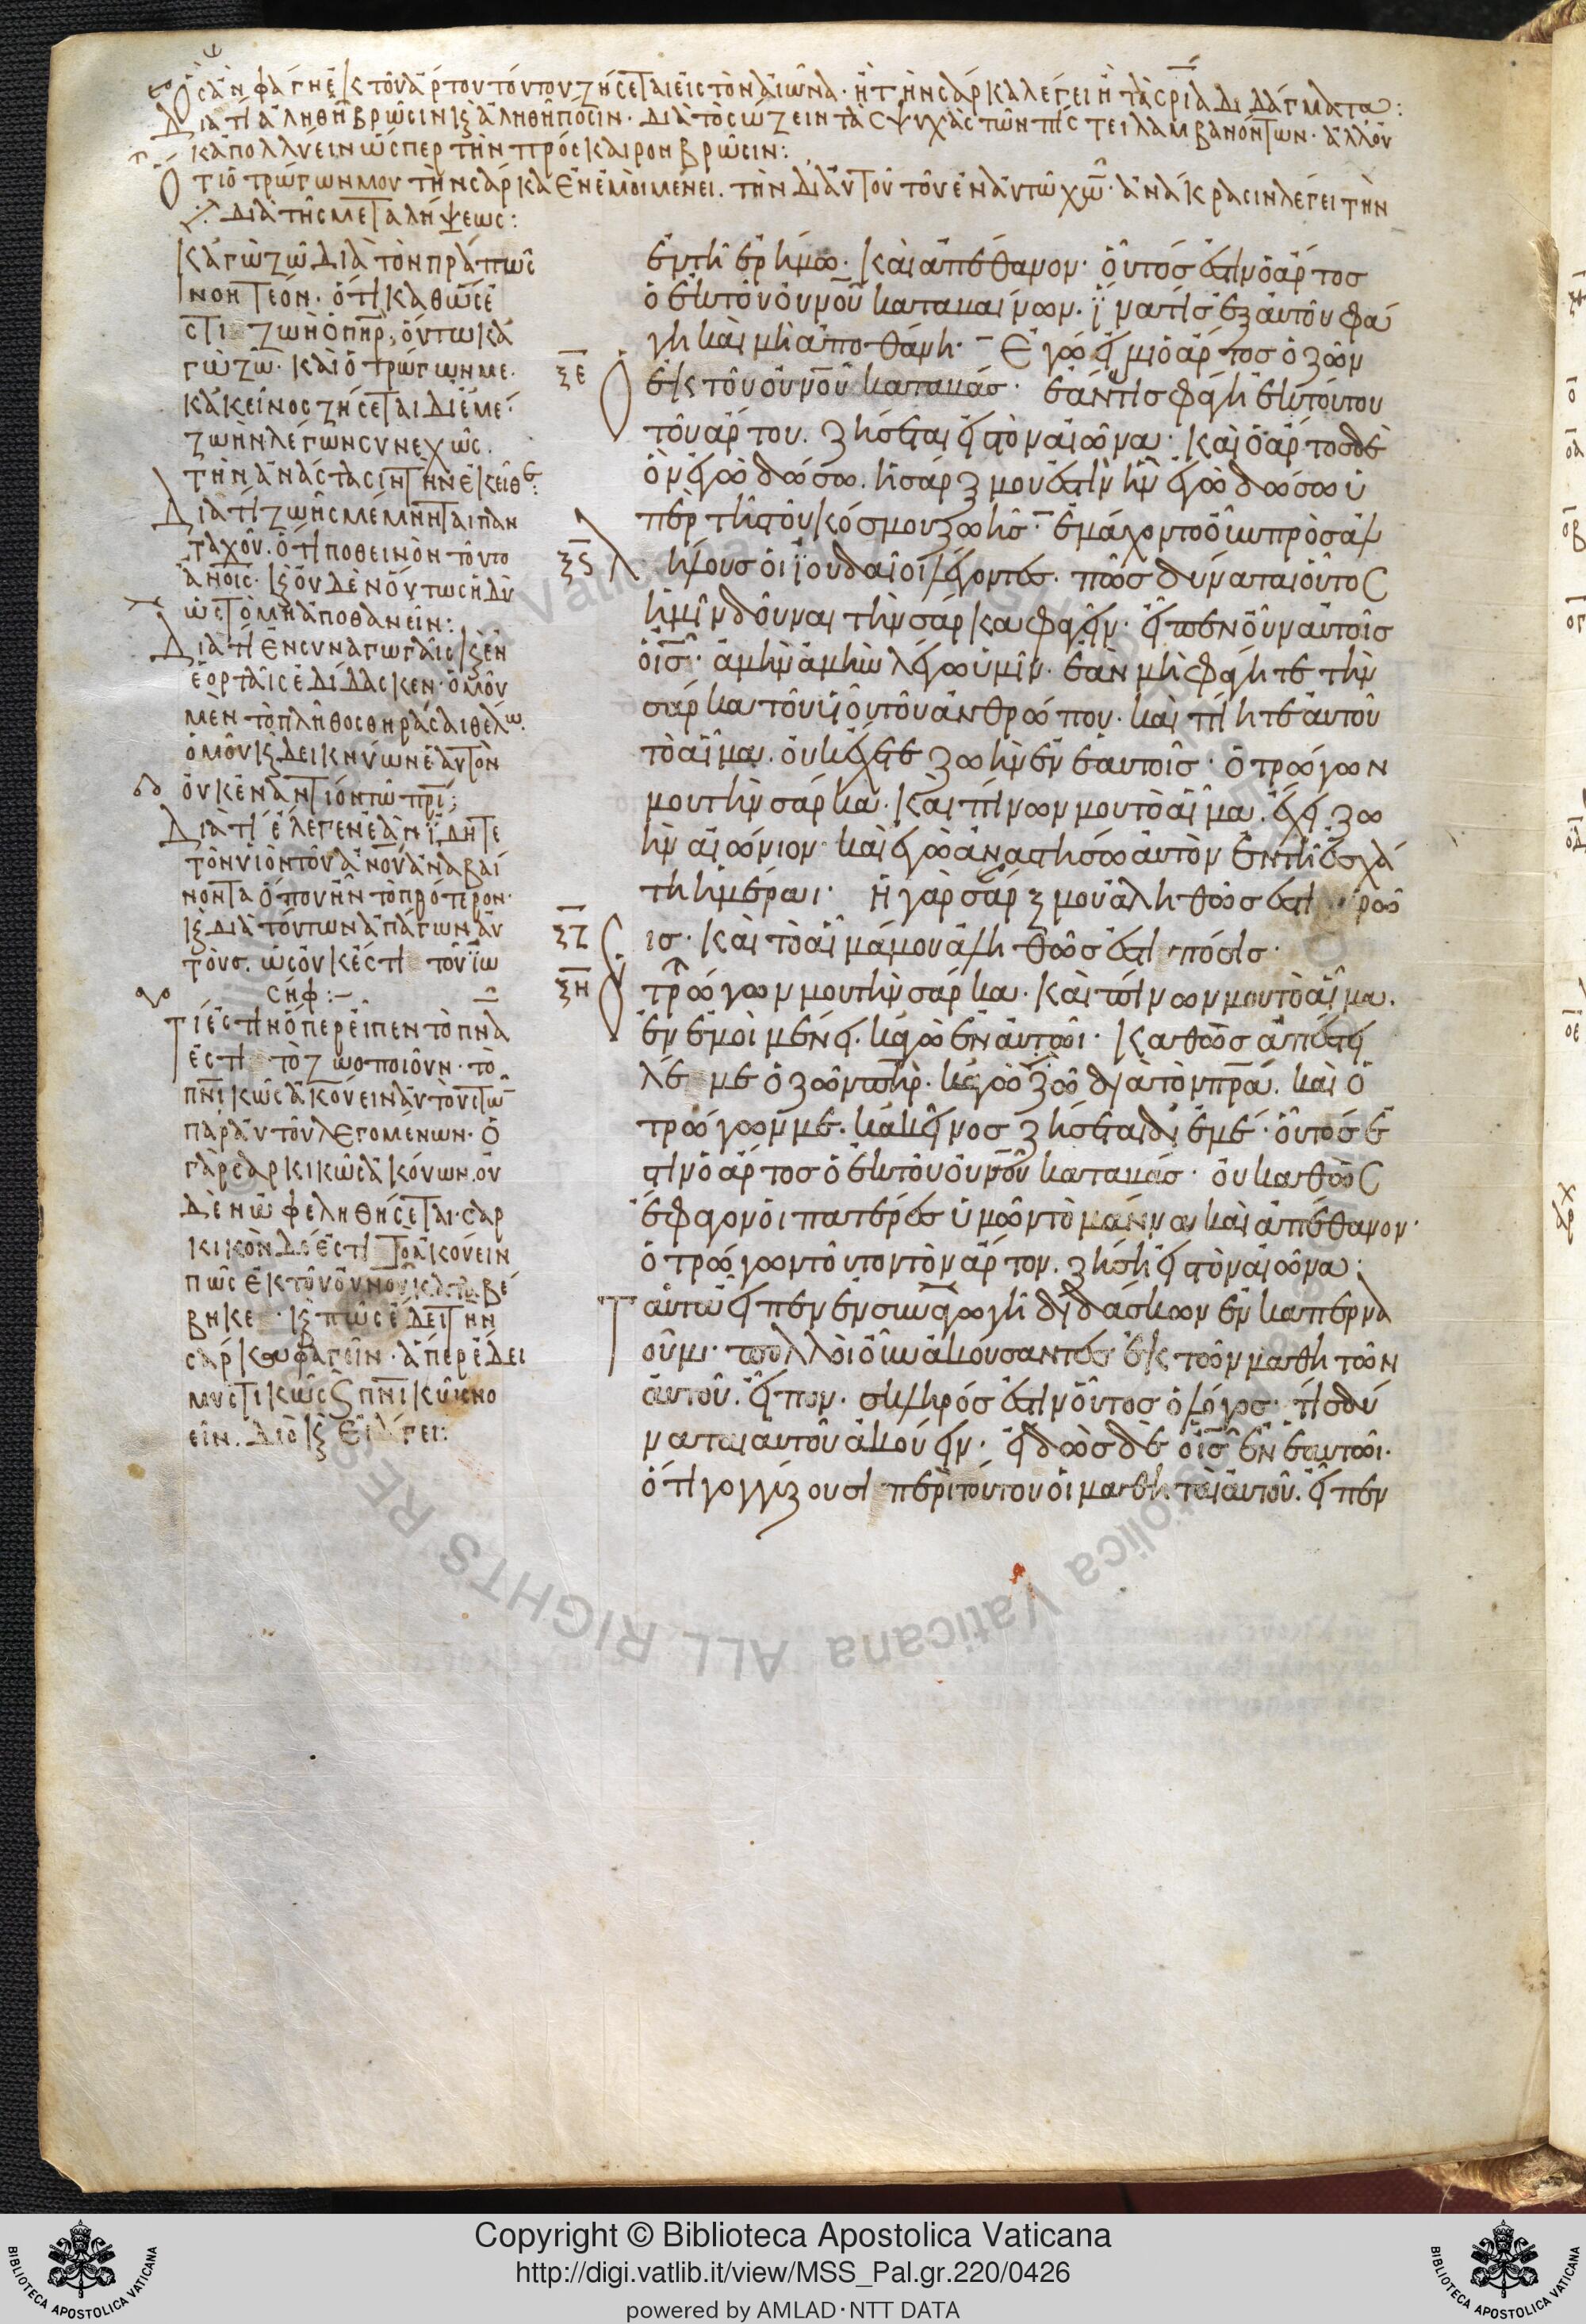 ὃς ἂν φάγη ἐκ τοῦ ἄρτου τούτου ζήσεται εἰς τὸν αἰῶνα· ἢ τὴν σάρκα λέγει ἢ τὰ σ̅ρ̅ι̅α̅ διδάγματα:
Διατί ἀληθῆ βρῶσιν κ ἀληθῆ πόσιν· διὰ τὸ σώζειν τὰς ψυχὰς τῶν πίστει λαμβανόντων· ἀλλ οὐ
κἀπολλύειν ὥσπερ τὴν πρόσκαιρον βρῶσιν:
Ὅτι ὁ τρώγων μου τὴν σάρκα ἐν ἐμοὶ μένει. τὴν δι αὐτοῦ τοῦ ἐν αὐτῶ χω· ἀνάκρασιν λέγει τὴν
διὰ τῆς μεταλήψεως:
κἀγὼ ζῶ διὰ τὸν πρα πῶς
νοητέον· ὅτι καθὼς ἐ
στι ζωὴ ὁ πηρ, οὕτω κἀ
γὼ ζῶ· καὶ ὁ τρώγων με·
κἀκεῖνος ζήσεται δι ἐμέ·
ζωὴν λέγων συνεχῶς.
τὴν ἀνάστασιν τὴν ἐκεῖθε:
Διατί ζωῆς μέμνηται παν
ταχοῦ. ὅτι ποθεινὸν τοῦτο
ἀνοις· κ οὐδὲν οὕτως ἡδὺ
ὡς τὸ μὴ ἀποθανεῖν:
Διατί ἐν συναγωγαῖς κ ἐν
ἑορταῖς ἐδίδασκεν· ὁμοῦ
μὲν τὸ πλῆθος θηράσαι θέλω.
ὁμοῦ κ δεικνύων ἑαυτὸν
οὐκ ἐναντίον τῶ πρι:
Διατί ἔλεγεν ἐὰν ἴδητε
τὸν υἱὸν τοῦ ανου ἀναβαί
νοντα ὅπου ἦν τὸ πρότερον·
κ διὰ τούτων ἀπάγων αὐ
τούς. ὡς οὐκ ἔστι τοῦ ἰω
σήφ:–
Τί ἐστιν ὅπερ εἶπεν τὸ πνα
ἐστι τὸ ζωοποιοῦν· τὸ
πνικῶς ἀκούειν αὐτοὺς τῶ
παρ αὐτοῦ λεγομένων· ὁ
γὰρ σαρκικῶς ἀκούων. οὐ
δὲν ὠφεληθήσεται· σαρ
κικὸν δέ ἐστι τὸ ἀκούειν
πῶς ἐκ τοῦ οὐνοῦ καταβέ
βηκε· κ πῶς ἔδει τὴν
σάρκα φαγεῖν· ἅπερ ἔδει
μυστικῶς κ πνικῶς νο
εῖν. διὸ κ
ἐν τῆ ἐρήμω· καὶ ἀπέθανον· οὗτός ἐστιν ὁ ἄρτος
ὁ ἐκ τοῦ ουνου καταβαίνων· ἵνα τίς ἐξ αὐτοῦ φά
γη καὶ μὴ ἀποθάνη· Ἐγώ εἰμι ὁ ἄρτος ὁ ζῶν
ξε ὁ ἐκ τοῦ ουνου καταβάς· ἐάν τις φάγη ἐκ τούτου
τοῦ ἄρτου. ζήσεται εἰς τὸν αἰῶνα· καὶ ὁ ἄρτος δὲ
ὃν ἐγὼ δώσω. ἡ σάρξ μου ἐστὶν ἣν ἐγὼ δώσω ὑ
πὲρ τῆς τοῦ κόσμου ζωῆς· ἐμάχοντο οὖν πρὸς ἀλ
ξς λήλους οἱ ἰουδαῖοι λέγοντες· πῶς δύναται οὗτος
ἡμῖν δοῦναι τὴν σάρκα φαγεῖν· εἶπεν οὖν αὐτοῖς
ὁ ις· ἀμὴν ἀμὴν λέγω ὑμῖν· ἐὰν μὴ φάγητε τὴν
σάρκα τοῦ υἱοῦ τοῦ ἀνθρώπου· καὶ πίητε αὐτοῦ
τὸ αἷμα. οὐκ ἔχετε ζωὴν ἐν ἑαυτοῖς· ὁ τρώγων
μου τὴν σάρκα· καὶ πίνων μου τὸ αἷμα. ἔχει ζω
ὴν αἰώνιον· καὶ ἐγὼ ἀναστήσω αὐτὸν ἐν τῆ ἐσχά
τη ἡμέραι· ἡ γὰρ σάρξ μου ἀληθῶς ἐστι βρῶ
ξζ σις· καὶ τὸ αἷμά μου ἀληθῶς ἐστι πόσις·
ξη ὁ τρώγων μου τὴν σάρκα· καὶ πίνων μου τὸ αἷμα.
ἐν ἐμοὶ μένει. κἀγὼ ἐν αὐτῶι· καθὼς ἀπέστει
λέ με ὁ ζῶν πηρ. κἀγὼ ζῶ διὰ τὸν πρα. καὶ ὁ
τρώγων με. κἀκεῖνος ζήσεται δι ἐμέ· οὗτός ἐ
στιν ὁ ἄρτος ὁ ἐκ τοῦ ουνου καταβάς· οὐ καθὼς
ἔφαγον οἱ πατέρες ὑμῶν τὸ μάννα καὶ ἀπέθανον·
ὁ τρώγων τοῦτον τὸν ἄρτον. ζήση εἰς τὸν αἰῶνα:
Ταῦτα εἶπεν ἐν συναγωγῆ διδάσκων ἐν καπερνα
οῦμ· πολλοὶ οὖν ἀκούσαντες ἐκ τῶν μαθητῶν
αὐτοῦ. εἶπον· σκληρός ἐστιν οὗτος ὁ λόγος· τίς δύ
ναται αὐτοῦ ἀκούειν· εἰδὼς δὲ ὁ ις ἐν ἑαυτῶι·
ὅτι γογγίζουσι περὶ τούτου οἱ μαθηταὶ αὐτοῦ. εἶπεν
Copyright © Biblioteca Apostolica Vaticana
http://digi.vatlib.it/view/MSS_Pal.gr.220/0426
powered by AMLAD·NTT DATA
BIBLIOTECA APOSTOLICA VATICANA
BIBLIOTECA APOSTOLICA VATICANA